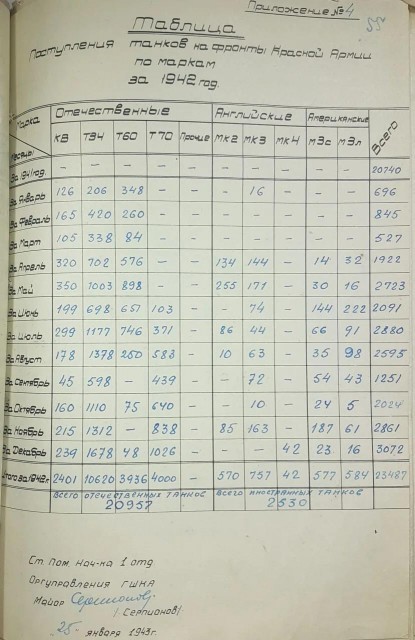 Приложение №4
Таблица
Поступления танков на фронты Красной Армии
по маркам
за 1942 год.
Марка Отечественные Английские Американские Всего
Месяцы КВ Т34 Т60 Т70 Прочие МК2 МК3 МК4 М3с М3л
За 1941 год. — — — — — — — — — — 20740
За Январь 126 206 348 — — — 16 — — — 696
За Февраль 165 420 260 — — — — — — — 845
За Март 105 338 84 — — — — — — — 527
За Апрель 320 702 576 — — 134 144 — 14 32 1922
За Май 350 1003 898 — — 255 171 — 30 16 2723
За Июнь 199 698 651 103 — — 74 — 144 222 2091
За Июль 299 1177 746 371 — 86 44 — 66 91 2880
За Август 178 1378 250 583 — 10 63 — 35 98 2595
За Сентябрь 45 598 — 439 — — 72 — 54 43 1251
За Октябрь 160 1110 75 640 — — 10 — 24 5 2024
За Ноябрь 215 1312 — 838 — 85 163 — 187 61 2861
За Декабрь 239 1678 48 1026 — — — 42 23 16 3072
Итого за 1942 г. 2401 10620 3936 4000 — 570 757 42 577 584 23487
Всего отечественных танков Всего иностранных танков
20957 2530
Ст. Пом. Нач-ка 1 отд.
Оргуправления ГШКА
Майор
/Серпионов/
25 января 1943 г.